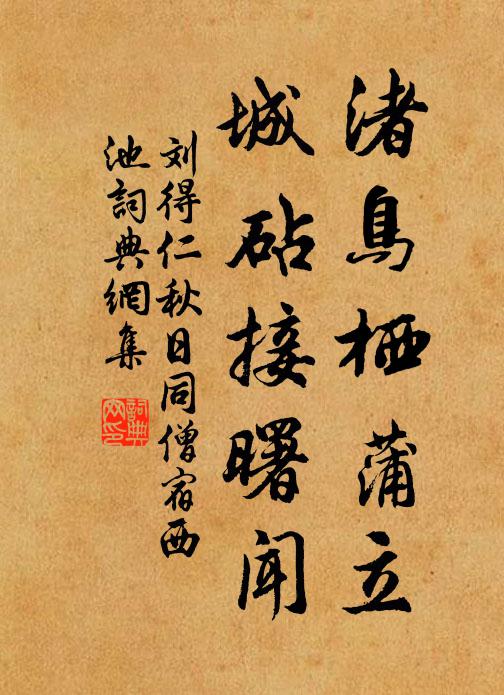 渚鳥栖蒲立
城砧接曙闻
刘得仁秋日同僧宿西
池詞典網集
詞典
网印